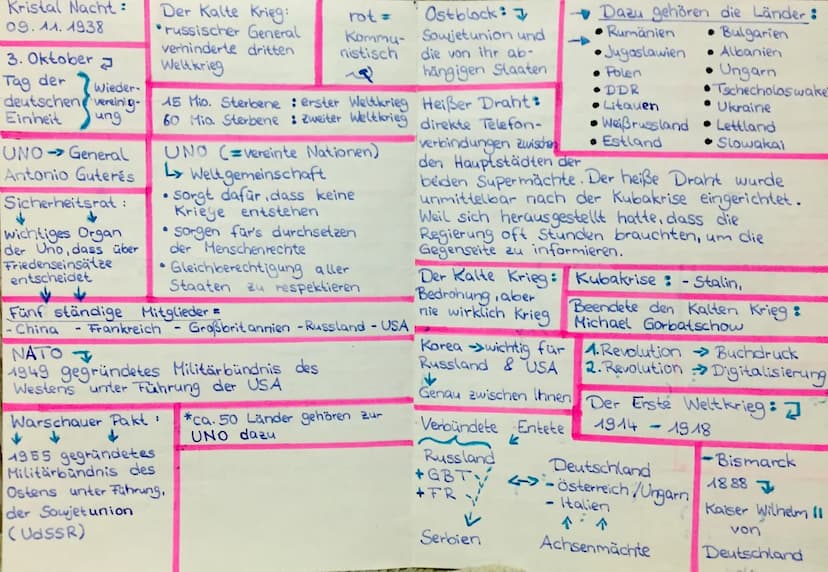 Kristal Nacht :
09.11.1938
3. Oktober
Tag der
deutschen
Einheit
Wieder-
vereinig-
ung
UNO → General
Antonio Guterés
Sicherheitsrat :
wichtiges Organ
der Uno, dass über
Friedenseinsätze
entscheidet
Der Kalte Krieg:
• russischer General
verhinderte dritten
Weltkrieg
rot =
Kommu-
nistisch
15 Mio. Sterbene : erster Weltkrieg
60 Mio. Sterbene : zweiter Weltkrieg
UNO (=vereinte Nationen)
↳ Weltgemeinschaft
• sorgt dafür, dass keine
Kriege entstehen
• sorgen für's durchsetzen
der Menschenrechte
• Gleichberechtigung aller
Staaten zu respektieren
Fünf ständige Mitglieder =
- China - Frankreich - Großbritannien - Russland - USA
NATO
1949 gegründetes Militärbündnis des
Westens unter Führung der USA
Warschauer Pakt :
1955 gegründetes
Militärbündnis des
Ostens unter Führung,
der Sowjetunion
(UdSSR)
*ca. 50 Länder gehören zur
UNO dazu
Ostblock :
Sowjetunion und
die von ihr ab-
hängigen Staaten
→ Dazu gehören die Länder :
→ • Rumänien
• Jugoslawien
• Polen
• DDR
• Litauen
• Weißrussland
• Estland
• Bulgarien
• Albanien
• Ungarn
• Tschecholoswakei
• Ukraine
• Lettland
• Slowakai
Heißer Draht :
direkte Telefon-
verbindungen zwischen
den Hauptstädten der
beiden Supermächte. Der heiße Draht wurde
unmittelbar nach der Kubakrise eingerichtet.
Weil sich herausgestellt hatte, dass die
Regierung oft Stunden brauchten, um die
Gegenseite zu informieren.
Der Kalte Krieg :
Bedrohung, aber
nie wirklich Krieg
Kubakrise : - Stalin,
Beendete den Kalten Krieg :
Michael Gorbatschow
Korea → wichtig für
Russland & USA
↓
Genau zwischen Ihnen
1. Revolution → Buchdruck
2. Revolution → Digitalisierung
Der Erste Weltkrieg :
1914 - 1918
Verbündete Entete
Russland
+ GBT
+ FR
Serbien
↔ Deutschland
- österreich/Ungarn
- Italien
Achsenmächte
- Bismarck
1888
Kaiser Wilhelm II
von
Deutschland